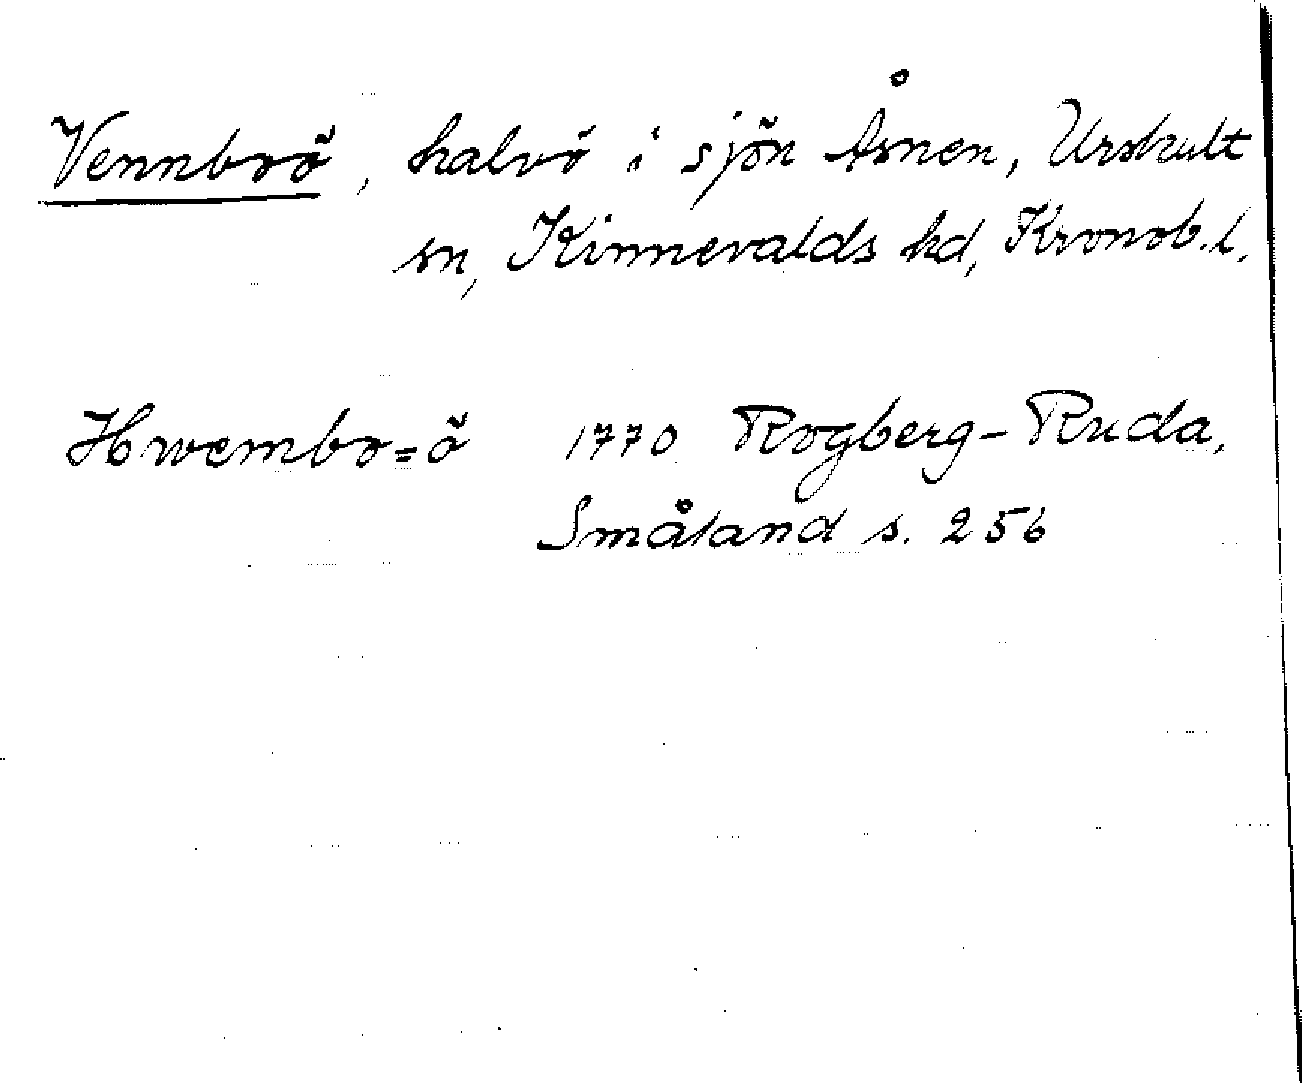 Vennboö, halvö i sjön Åsnen, Urshult
sn, Kinnevalds hd, Kronob. l.
Hwembo=ö 1770 Rogberg-Ruda,
Småland s. 256